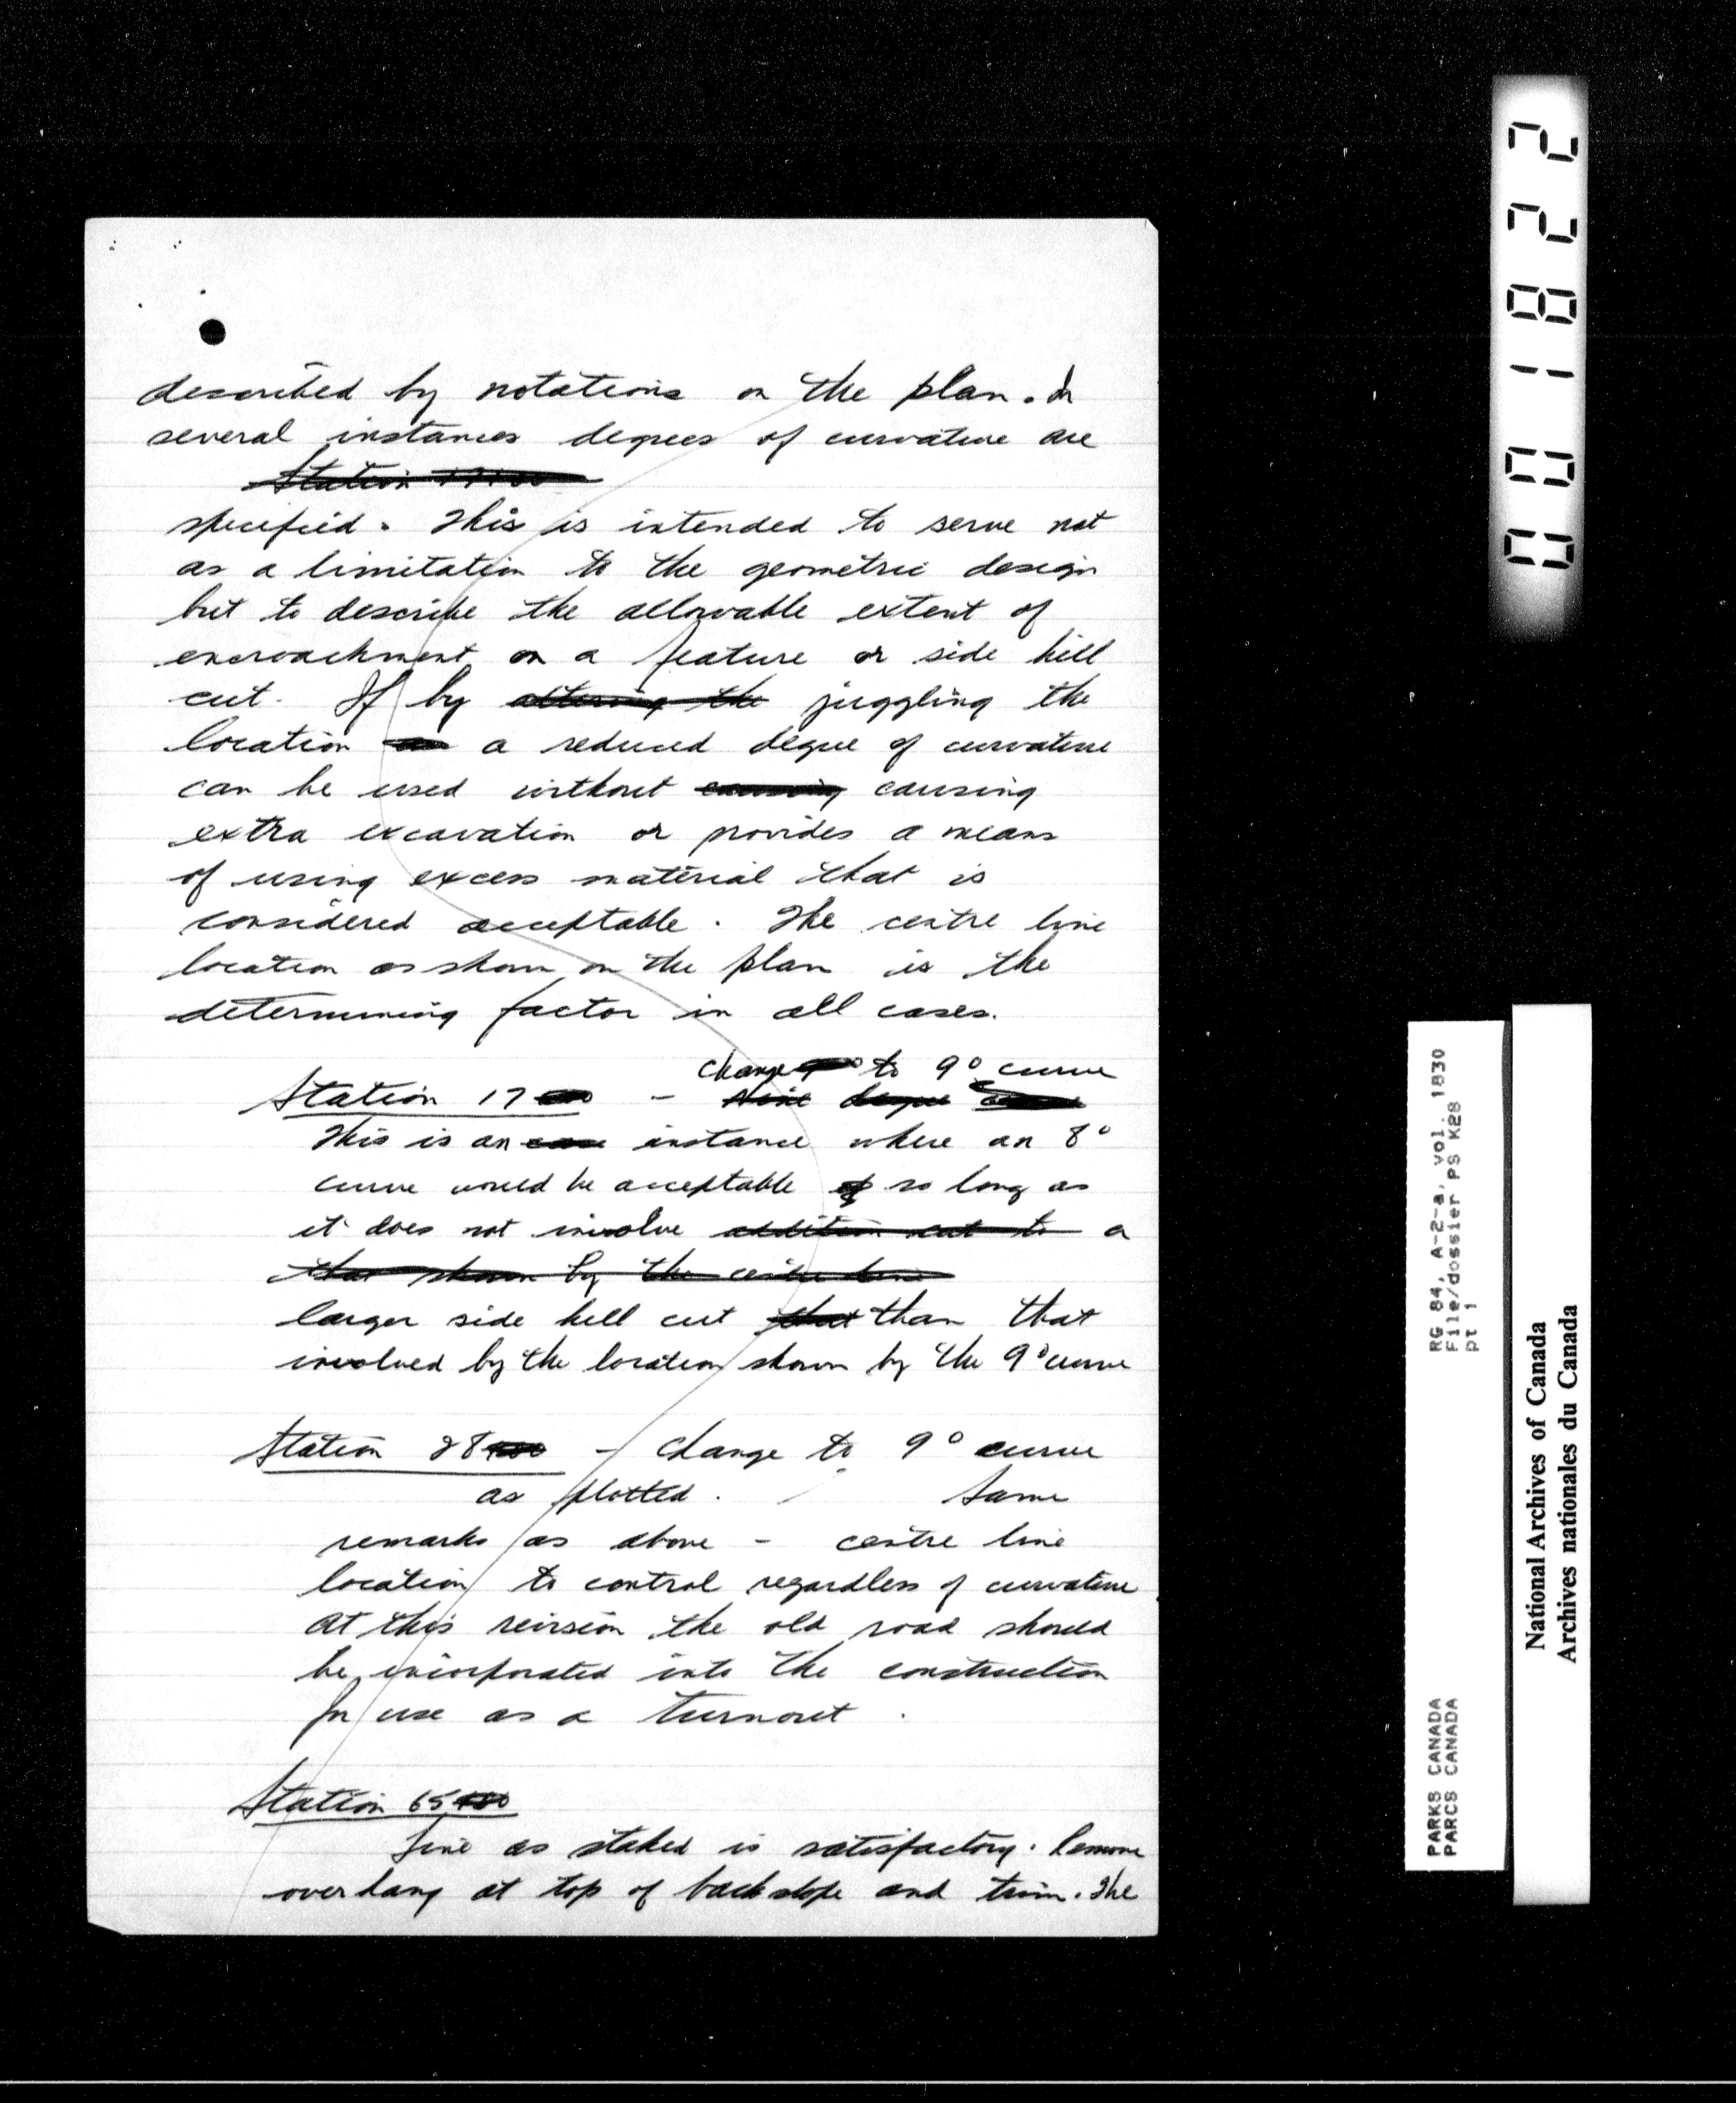 described by notations on the plan. In
several instances degrees of curvature are
Station 17+00
specified. This is intended to serve not
as a limitation to the geometric design
but to describe the allowable extent of
encroachment on a feature or side hill
cut. If by altering the juggling the
location a reduced degree of curvature
can be used without causing causing
extra excavation or provides a means
of using excess material that is
considered acceptable. The centre line
location as shown on the plan is the
determining factor in all cases.
change to 9° curve
Station 17 - Nine degree curve
This is an case instance where an 8°
curve would be acceptable so long as
it does not involve addition cut to a
that shown by the centre line
larger side hill cut that than that
involved by the location shown by the 9° curve
Station 28+00 - Change to 9° curve
as plotted. Same
remarks as above - centre line
location to control regardless of curvature
At this revision the old road should
be incorporated into the construction
for use as a turnout.
Station 65+00
Line as staked is satisfactory. Remove
overhang at top of backslope and trim. The
001822
RG 84, A-2-a, vol. 1830
File/dossier PS K28
pt 1
PARKS CANADA
PARCS CANADA
National Archives of Canada
Archives nationales du Canada